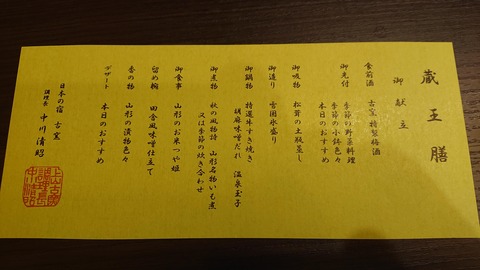 蔵王膳
御献立
食前酒 古窯特製梅酒
御先付 季節の野菜料理
季節の小鉢色々
本日のおすすめ
御吸物 松茸の土瓶蒸し
御造り 雪国氷盛り
御鍋物 特選牛すき焼き
胡麻味噌だれ 温泉玉子
御煮物 秋の風物詩 山形名物いも煮
又は季節の炊き合わせ
御食事 山形のお米つや姫
留め椀 田舎風味噌仕立て
香の物 山形の漬物色々
デザート 本日のおすすめ
日本の宿 古窯
調理長 中川清昭